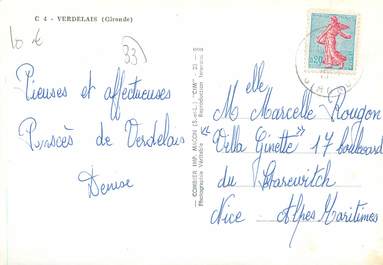 C 4 - VERDELAIS (Gironde)
10 €
33
Pieuses et affectueuses
Pensées de Verdelais
Denise
COMBIER IMP. MACON (S.-&-L.) "CIM"
Photographie Véritable - Reproduction Interdite
0,20
Melle
M Marcelle Rougon
"Villa Ginette" 17 boulevard
du Tzarewitch
Nice Alpes Maritimes